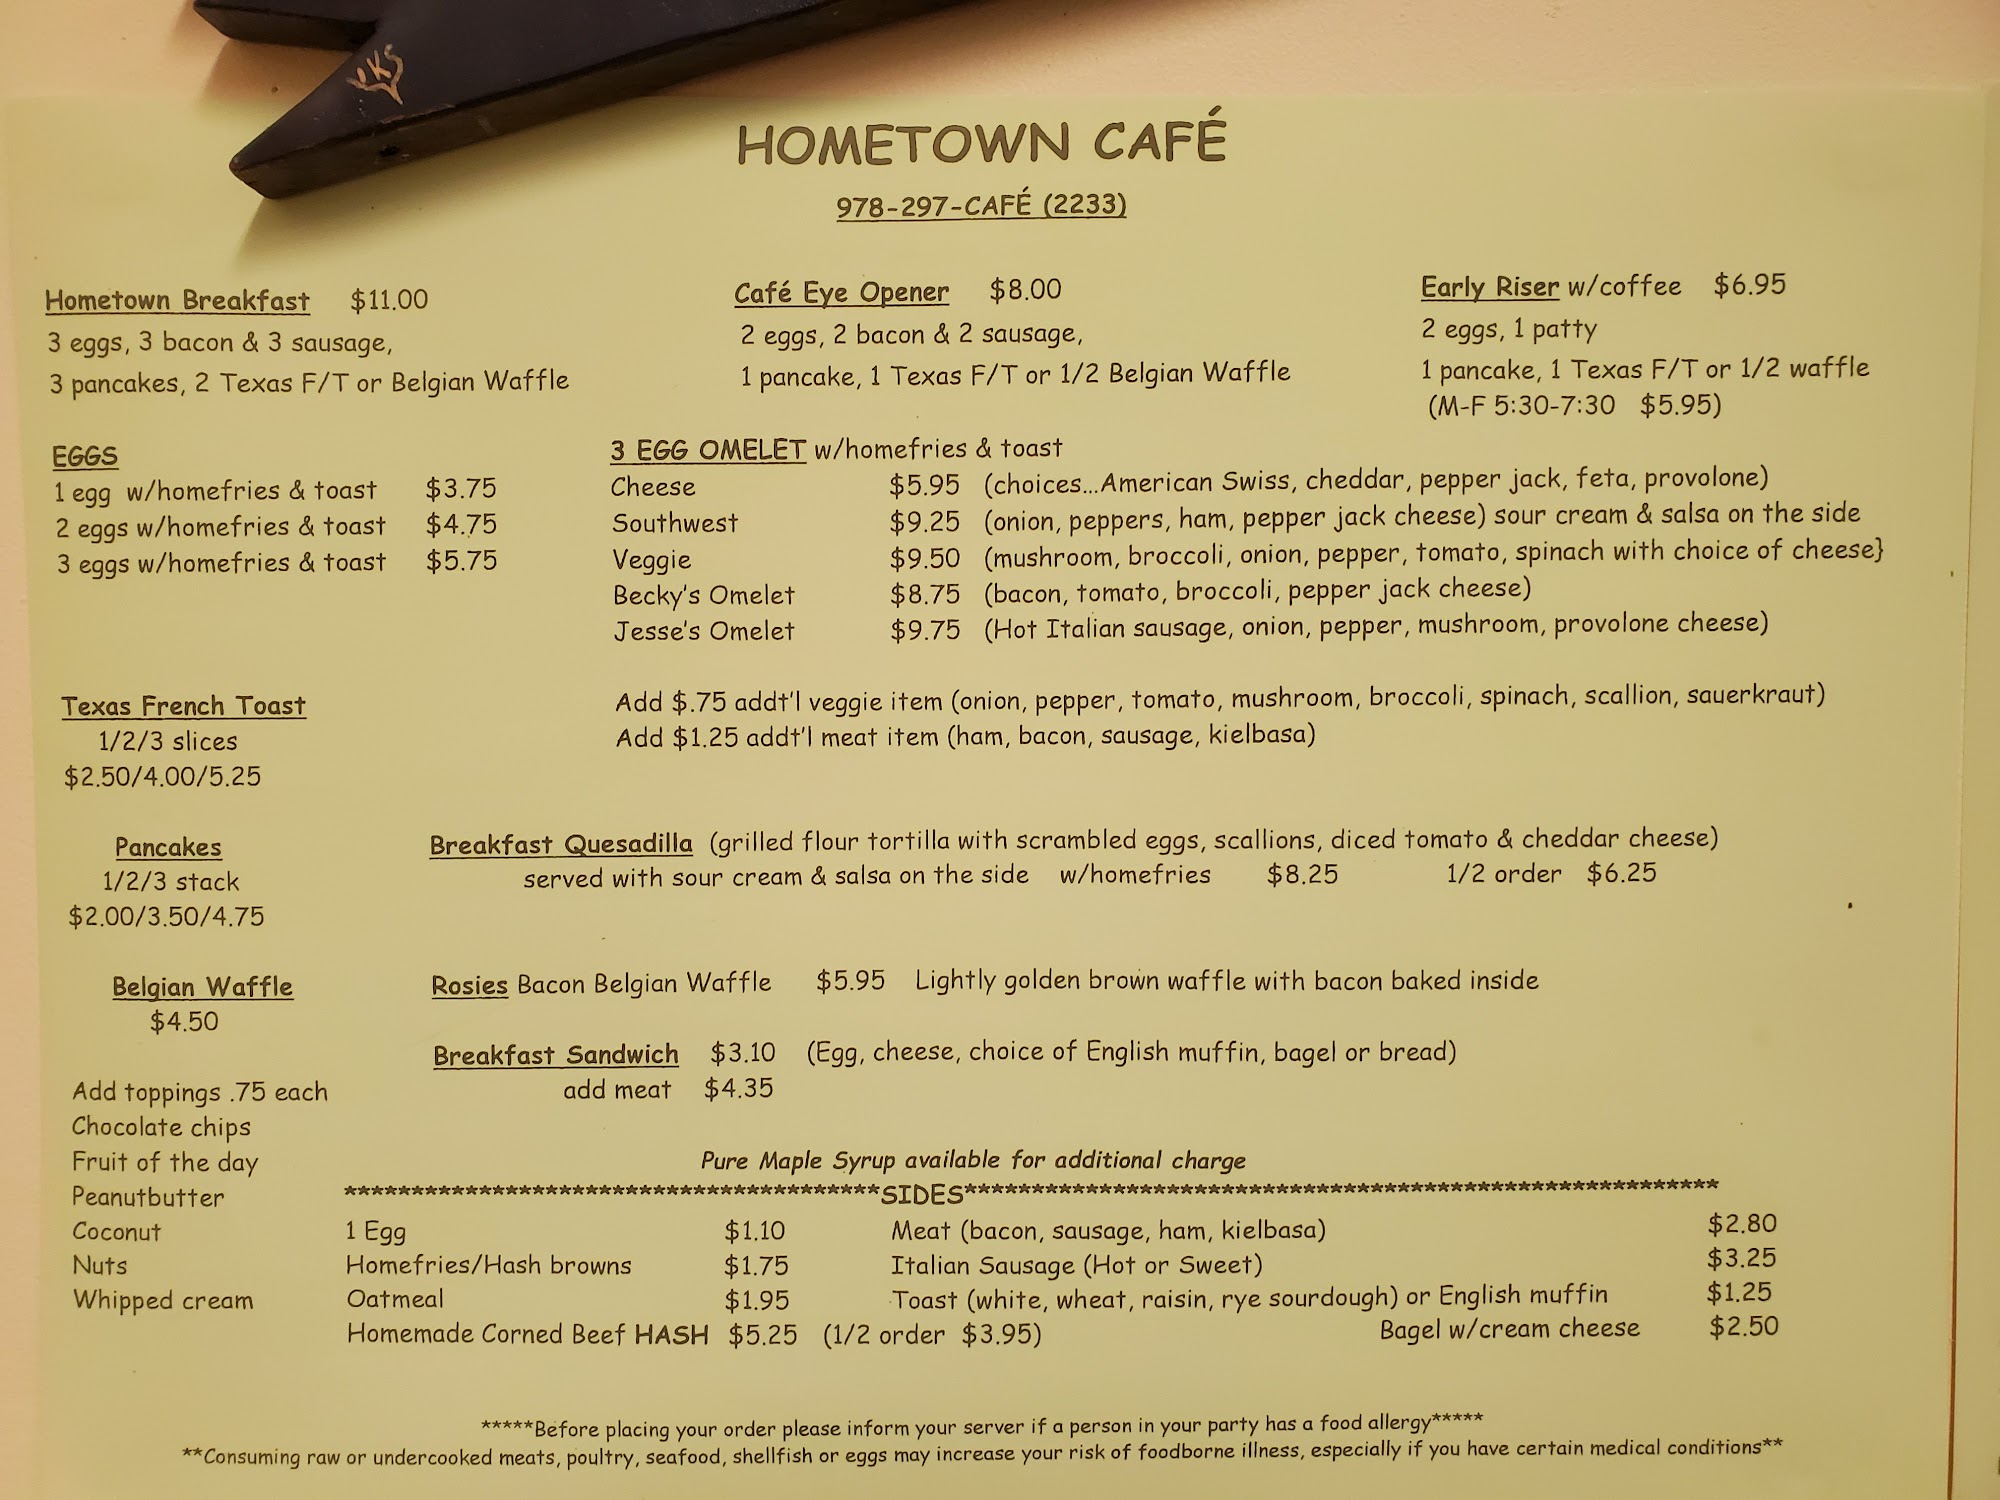 YKS
HOMETOWN CAFÉ
978-297-CAFÉ (2233)
Hometown Breakfast $11.00
3 eggs, 3 bacon & 3 sausage,
3 pancakes, 2 Texas F/T or Belgian Waffle
Café Eye Opener $8.00
2 eggs, 2 bacon & 2 sausage,
1 pancake, 1 Texas F/T or 1/2 Belgian Waffle
Early Riser w/coffee $6.95
2 eggs, 1 patty
1 pancake, 1 Texas F/T or 1/2 waffle
(M-F 5:30-7:30 $5.95)
EGGS
1 egg w/homefries & toast $3.75
2 eggs w/homefries & toast $4.75
3 eggs w/homefries & toast $5.75
3 EGG OMELET w/homefries & toast
Cheese $5.95 (choices...American Swiss, cheddar, pepper jack, feta, provolone)
Southwest $9.25 (onion, peppers, ham, pepper jack cheese) sour cream & salsa on the side
Veggie $9.50 (mushroom, broccoli, onion, pepper, tomato, spinach with choice of cheese}
Becky's Omelet $8.75 (bacon, tomato, broccoli, pepper jack cheese)
Jesse's Omelet $9.75 (Hot Italian sausage, onion, pepper, mushroom, provolone cheese)
Add $.75 addt'l veggie item (onion, pepper, tomato, mushroom, broccoli, spinach, scallion, sauerkraut)
Add $1.25 addt'l meat item (ham, bacon, sausage, kielbasa)
Texas French Toast
1/2/3 slices
$2.50/4.00/5.25
Pancakes
1/2/3 stack
$2.00/3.50/4.75
Belgian Waffle
$4.50
Add toppings .75 each
Chocolate chips
Fruit of the day
Peanutbutter
Coconut
Nuts
Whipped cream
Breakfast Quesadilla (grilled flour tortilla with scrambled eggs, scallions, diced tomato & cheddar cheese)
served with sour cream & salsa on the side w/homefries $8.25 1/2 order $6.25
Rosies Bacon Belgian Waffle $5.95 Lightly golden brown waffle with bacon baked inside
Breakfast Sandwich $3.10 (Egg, cheese, choice of English muffin, bagel or bread)
add meat $4.35
Pure Maple Syrup available for additional charge
****************************************SIDES**************************************************************
1 Egg $1.10 Meat (bacon, sausage, ham, kielbasa) $2.80
Homefries/Hash browns $1.75 Italian Sausage (Hot or Sweet) $3.25
Oatmeal $1.95 Toast (white, wheat, raisin, rye sourdough) or English muffin $1.25
Homemade Corned Beef HASH $5.25 (1/2 order $3.95) Bagel w/cream cheese $2.50
*****Before placing your order please inform your server if a person in your party has a food allergy*****
**Consuming raw or undercooked meats, poultry, seafood, shellfish or eggs may increase your risk of foodborne illness, especially if you have certain medical conditions**